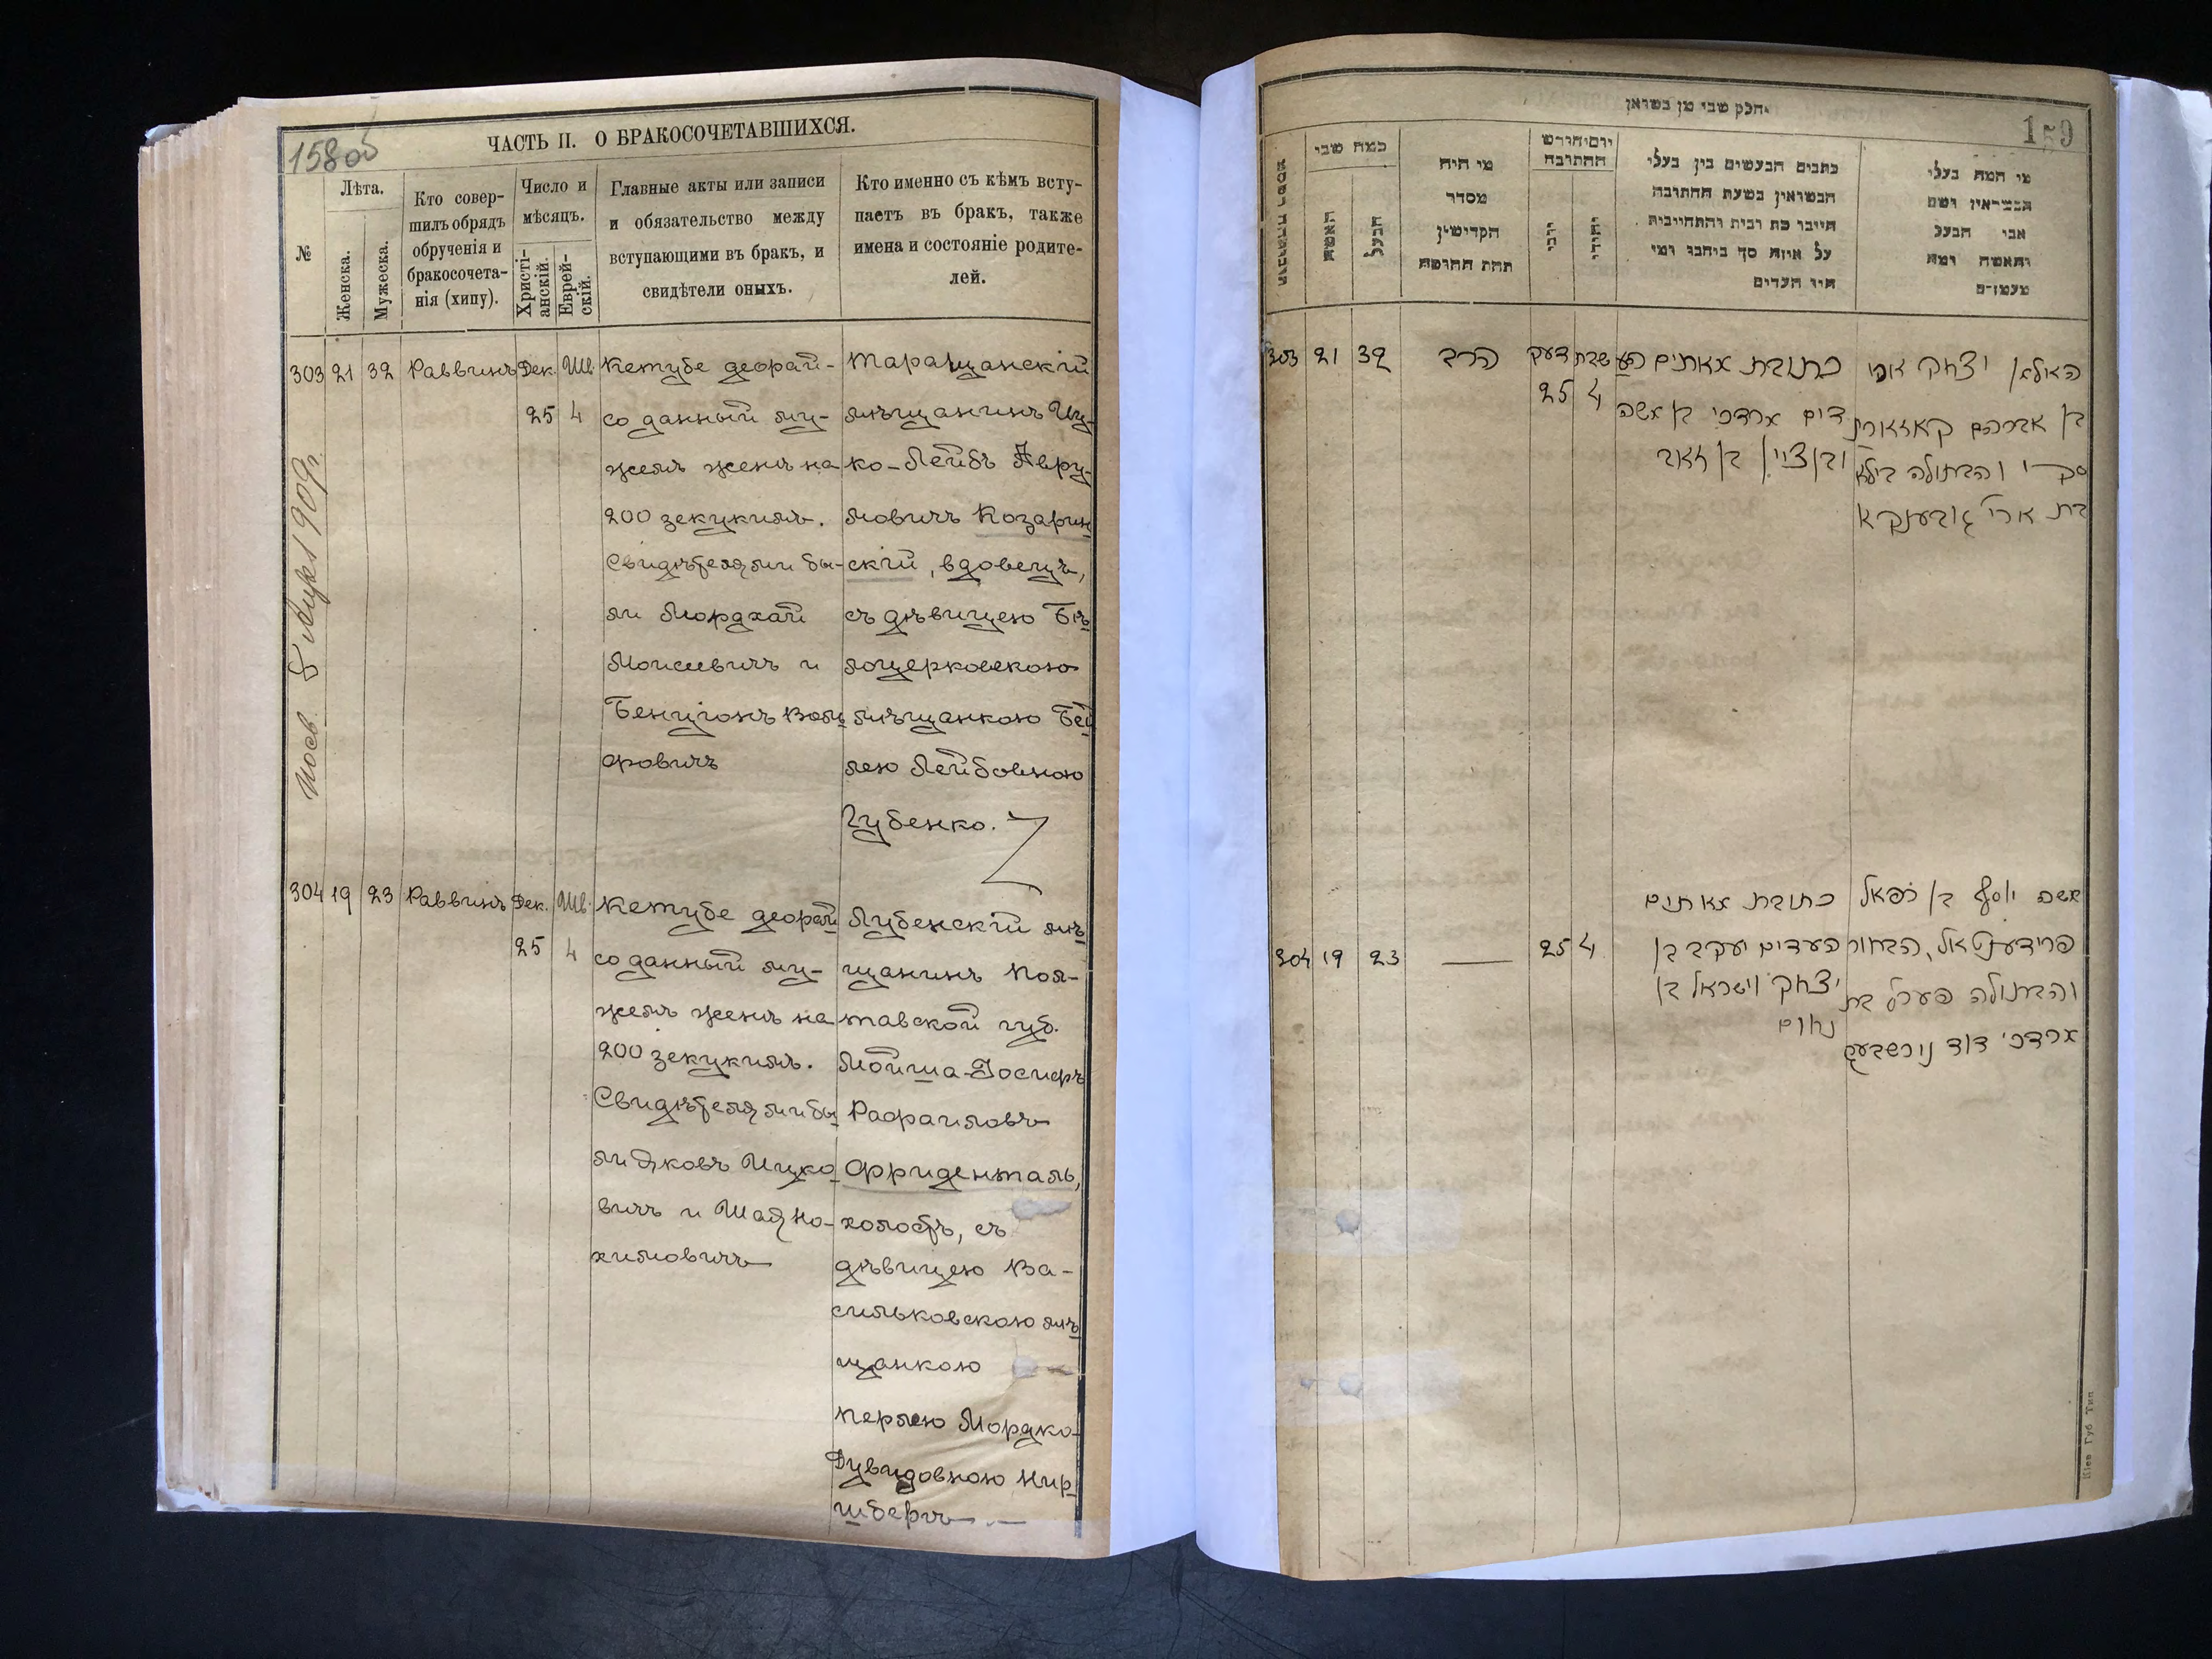 158 об
ЧАСТЬ II. О БРАКОСОЧЕТАВШИХСЯ.
№
Лѣта.
Женска.
Мужеска.
Кто совер-
шилъ обрядъ
обрученія и
бракосочета-
нія (хипу).
Число и
мѣсяцъ.
Христі-
анскій.
Еврей-
скій.
Главные акты или записи
и обязательство между
вступающими въ бракъ, и
свидѣтели оныхъ.
Кто именно съ кѣмъ всту-
паетъ въ бракъ, также
имена и состояніе родите-
лей.
303 21 32 Раввинъ Дек. Шв.
25 4
Кетубе деорай-
со данный му-
жемъ женѣ на
200 зекукимъ.
Свидѣтелями бы-
ли Мордхай
Моисеевичъ и
Бенціонъ Воль
фовичъ
Таращанскій
мѣщанинъ Иц-
ко-Лейбъ Авру-
мовичъ Козарин
скій, вдовецъ,
съ дѣвицею Бѣ
лоцерковскою
мѣщанкою Бей
лею Лейбовною
Губенко.
1909г.
304 19 23 Раввинъ Дек. Шв.
25 4
Кетубе деорай
со данный му-
жемъ женѣ на
200 зекукимъ.
Свидѣтелями бы
ли Яковъ Ицко
вичъ и Шая Но-
химовичъ
Лубенскій мѣ
щанинъ Пол-
тавской губ.
Мойша-Іосифъ
Рафаиловъ
Фриденталь,
холостъ, съ
дѣвицею Ва-
сильковскою мѣ
щанкою
Перлею Мордко-
Дувидовною Нир
шбергъ
159
חלק שני מן נשואן
כמה שני
האשה
הבעל
מי היה
מסדר
הקדישין
תחת החופה
יום וחודש
החתונה
יוני
יהודי
כתבים הנעשים בין בעלי
הנשואין בשעת החתונה
חייבו כת ובית והתחייבות
על איזה סך ביתבו ומי
היו העדים
מי המה בעלי
הנשואין ושם
אבי הבעל
והאשה ומה
מעמדם
303 21 32 הרב דעק שבת
25 4
כתובת מאתים העי
דים מרדכי בן משה
ובן ציון בן זאב
האלמן יצחק ארי
בן אברהם קאזארינ
סקי והבתולה בילא
בת ארי גובענקא
304 19 23 — 25 4
כתובת מאתים
העדים יעקב בן
יצחק וישראל בן
נחום
משה יוסף בן רפאל
פרידענטאל, הבחור
והבתולה פערל בת
מרדכי דוד נירשבערג
Кіев Губ Тип